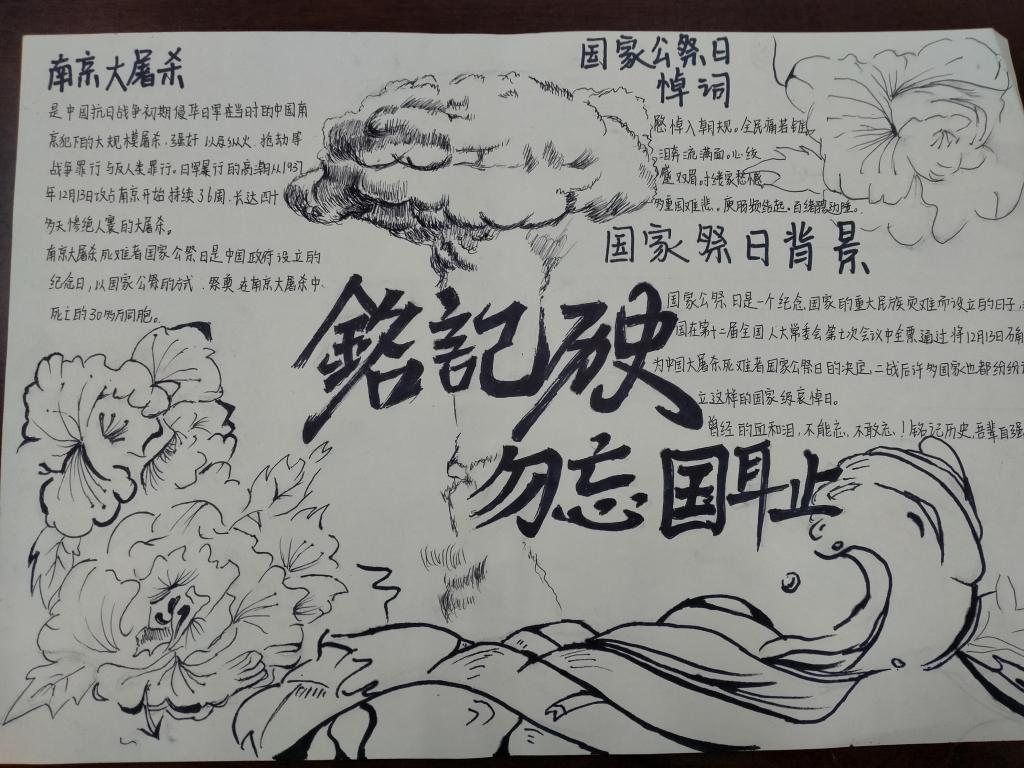 南京大屠杀
是中国抗日战争初期侵华日军在当时的中国南
京犯下的大规模屠杀、强奸以及纵火、抢劫等
战争罪行与反人类罪行。日军暴行的高潮从1937
年12月13日攻占南京开始持续36周,长达四十
多天惨绝人寰的大屠杀。
南京大屠杀死难者国家公祭日是中国政府设立的
纪念日,以国家公祭的方式,祭奠在南京大屠杀中
死亡的30多万同胞。
国家公祭日
悼词
悼入朝规。全民痛若
泪奔流满面。心
双眉。寸绪家愁
多重国难悲。百绪
国家祭日背景
国家公祭日是一个纪念国家的重大民族灾难而设立的日子,
国在第十二届全国人大常委会第七次会议中全票通过将12月13日确
为中国大屠杀死难者国家公祭日的决定,二战后许多国家也都纷纷
立这样的国家级哀悼日。
曾经的血和泪,不能忘,不敢忘!铭记历史,吾辈自强
銘記历史
勿忘国耻